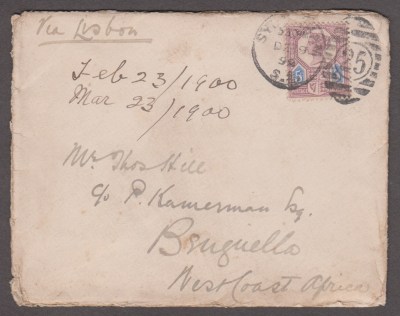 Via Lisbon
Feb 23/1900
Mar 23/1900
Mr. Thos Hill
c/o P. Kamerman Esq.
Benguella
West Coast Africa
5
95